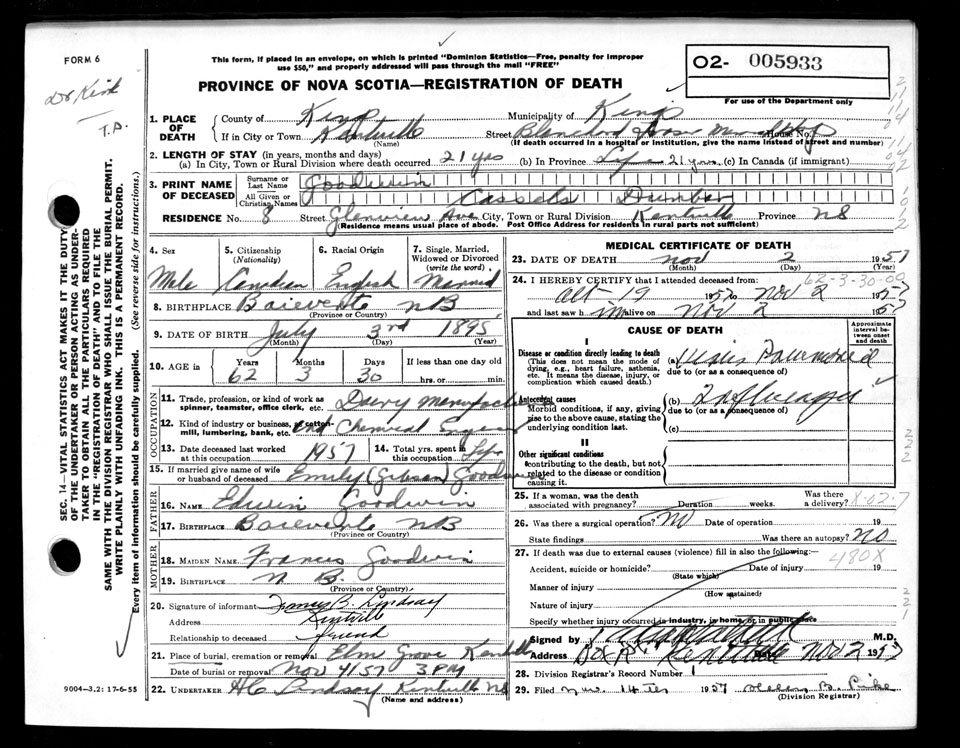 FORM 6
This form, if placed in an envelope, on which is printed "Dominion Statistics—Free, penalty for improper
use $50," and properly addressed will pass through the mail "FREE"
O2- 005933
For use of the Department only
PROVINCE OF NOVA SCOTIA—REGISTRATION OF DEATH
Dr Kirk
T.P.
1. PLACE OF DEATH
County of Kings
Municipality of Kings
If in City or Town Kentville
(Name)
Street Blanchard
House No.
(If death occurred in a hospital or institution, give the name instead of street and number)
2. LENGTH OF STAY (in years, months and days)
(a) In City, Town or Rural Division where death occurred 21 yrs (b) In Province 21 yrs. (c) In Canada (if immigrant)
3. PRINT NAME OF DECEASED
Surname or Last Name Goodwin
All Given or Christian Names Cassels Dunbar
RESIDENCE No. 8 Street Glenview Ave City, Town or Rural Division Kentville Province NS
(Residence means usual place of abode. Post Office Address for residents in rural parts not sufficient)
4. Sex Male
5. Citizenship (Nationality) Canadian
6. Racial Origin English
7. Single, Married, Widowed or Divorced (write the word) Married
8. BIRTHPLACE Baieverte NB
(Province or Country)
9. DATE OF BIRTH July 3rd 1895
(Month) (Day) (Year)
10. AGE in Years 62 Months 3 Days 30 If less than one day old
hrs. or min.
OCCUPATION
11. Trade, profession, or kind of work as
spinner, teamster, office clerk, etc. Dairy
12. Kind of industry or business, as cotton-
mill, lumbering, bank, etc. and Chemical
13. Date deceased last worked at this occupation 1957
14. Total yrs. spent in this occupation
15. If married give name of wife
or husband of deceased Emily (Gibson) Goodwin
FATHER
16. NAME Edwin Goodwin
17. BIRTHPLACE Baieverte NB
(Province or Country)
MOTHER
18. MAIDEN NAME Frances Goodwin
19. BIRTHPLACE N. B.
(Province or Country)
20. Signature of informant B. Lindsay
Address Kentville
Relationship to deceased friend
21. Place of burial, cremation or removal Elm Grove Kentville
Date of burial or removal Nov 4/57 3 PM
22. UNDERTAKER HC Lindsay Kentville NS
(Name and address)
9004—3.2: 17-6-55
MEDICAL CERTIFICATE OF DEATH
23. DATE OF DEATH Nov 2 1957
(Month) (Day) (Year)
24. I HEREBY CERTIFY that I attended deceased from:
62-3-30-00
Oct 19 1957 to Nov 2 1957
and last saw him alive on Nov 2 1957
CAUSE OF DEATH
Approximate interval between onset and death
I
Disease or condition directly leading to death
(This does not mean the mode of
dying, e.g., heart failure, asthenia,
etc. It means the disease, injury, or
complication which caused death.)
(a) Virus
due to (or as a consequence of)
Antecedent causes
Morbid conditions, if any, giving
rise to the above cause, stating the
underlying condition last.
(b) Influenza
due to (or as a consequence of)
(c)
II
Other significant conditions
contributing to the death, but not
related to the disease or condition
causing it.
25. If a woman, was the death
associated with pregnancy? Duration weeks. Was there a delivery?
26. Was there a surgical operation? No Date of operation 19
State findings Was there an autopsy? No
27. If death was due to external causes (violence) fill in also the following:
480X
Accident, suicide or homicide? Date of injury 19
(State which)
Manner of injury
(How sustained)
Nature of injury
Specify whether injury occurred in industry, in home, or in public place
Signed by M.D.
Address Kentville Date Nov 2 1957
28. Division Registrar's Record Number
29. Filed Nov. 14 1957 Helen B. Pike
(Division Registrar)
SEC. 14—VITAL STATISTICS ACT MAKES IT THE DUTY
OF THE UNDERTAKER OR PERSON ACTING AS UNDER-
TAKER TO OBTAIN ALL THE PARTICULARS REQUIRED
IN THE "REGISTRATION OF DEATH" AND TO FILE THE
SAME WITH THE DIVISION REGISTRAR WHO SHALL ISSUE THE BURIAL PERMIT.
WRITE PLAINLY WITH UNFADING INK. THIS IS A PERMANENT RECORD.
Every item of information should be carefully supplied. (See reverse side for instructions.)